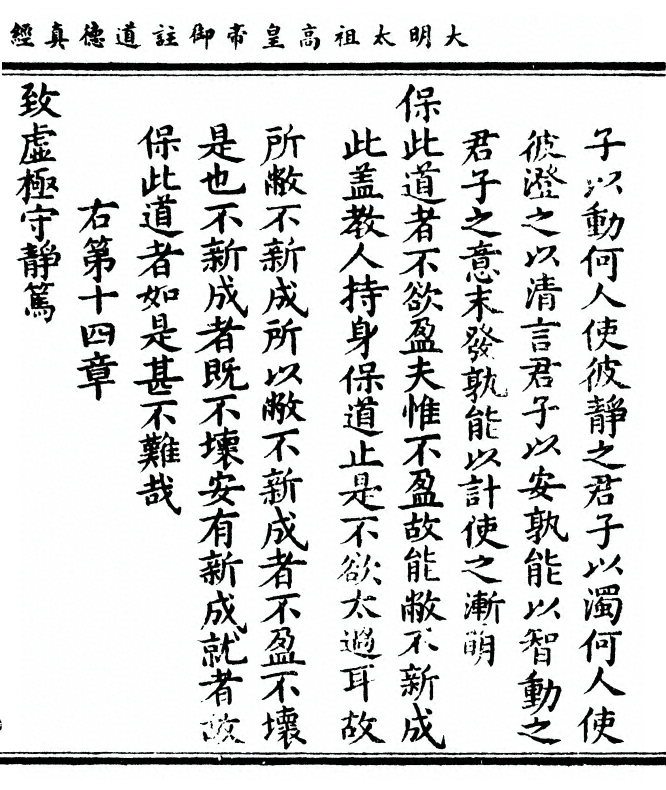 大明太祖高皇帝御註道德真經
子以動何人使彼靜之君子以濁何人使
彼澄之以清言君子以安孰能以智動之
君子之意末發孰能以計使之漸萌
保此道者不欲盈夫惟不盈故能敝不新成
此盖教人持身保道止是不欲太過耳故
所敝不新成所以敝不新成者不盈不壞
是也不新成者既不壞安有新成就者故
保此道者如是甚不難哉
右第十四章
致虛極守靜篤